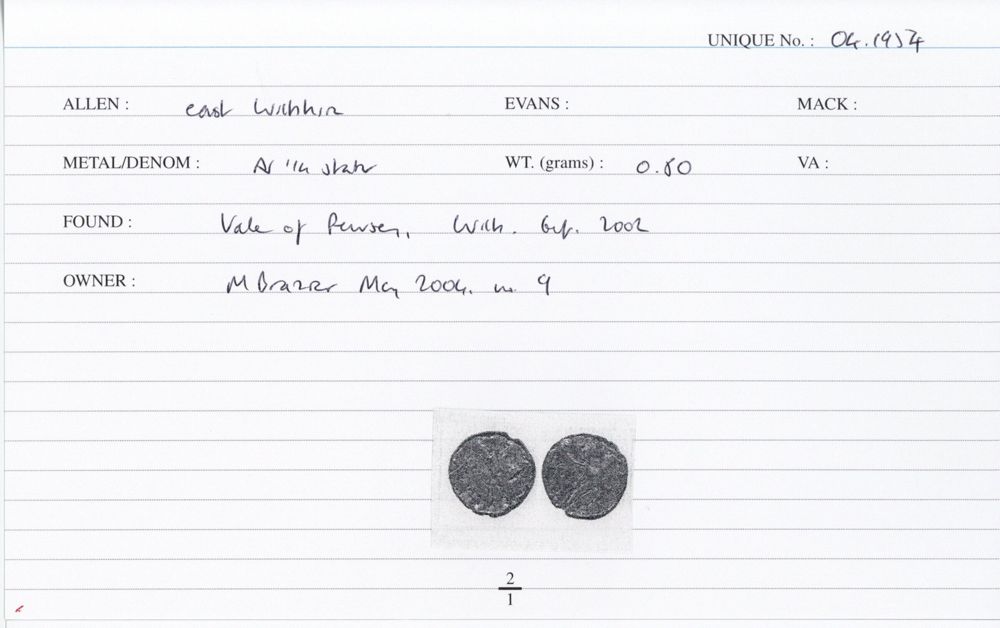 UNIQUE No. : 04.1954
ALLEN : east Wiltshire EVANS : MACK :
METAL/DENOM : Ar 1/4 stater WT. (grams) : 0.80 VA :
FOUND : Vale of Pewsey, Wilts. 2002
OWNER : M Brazier May 2004. no. 9
2
1